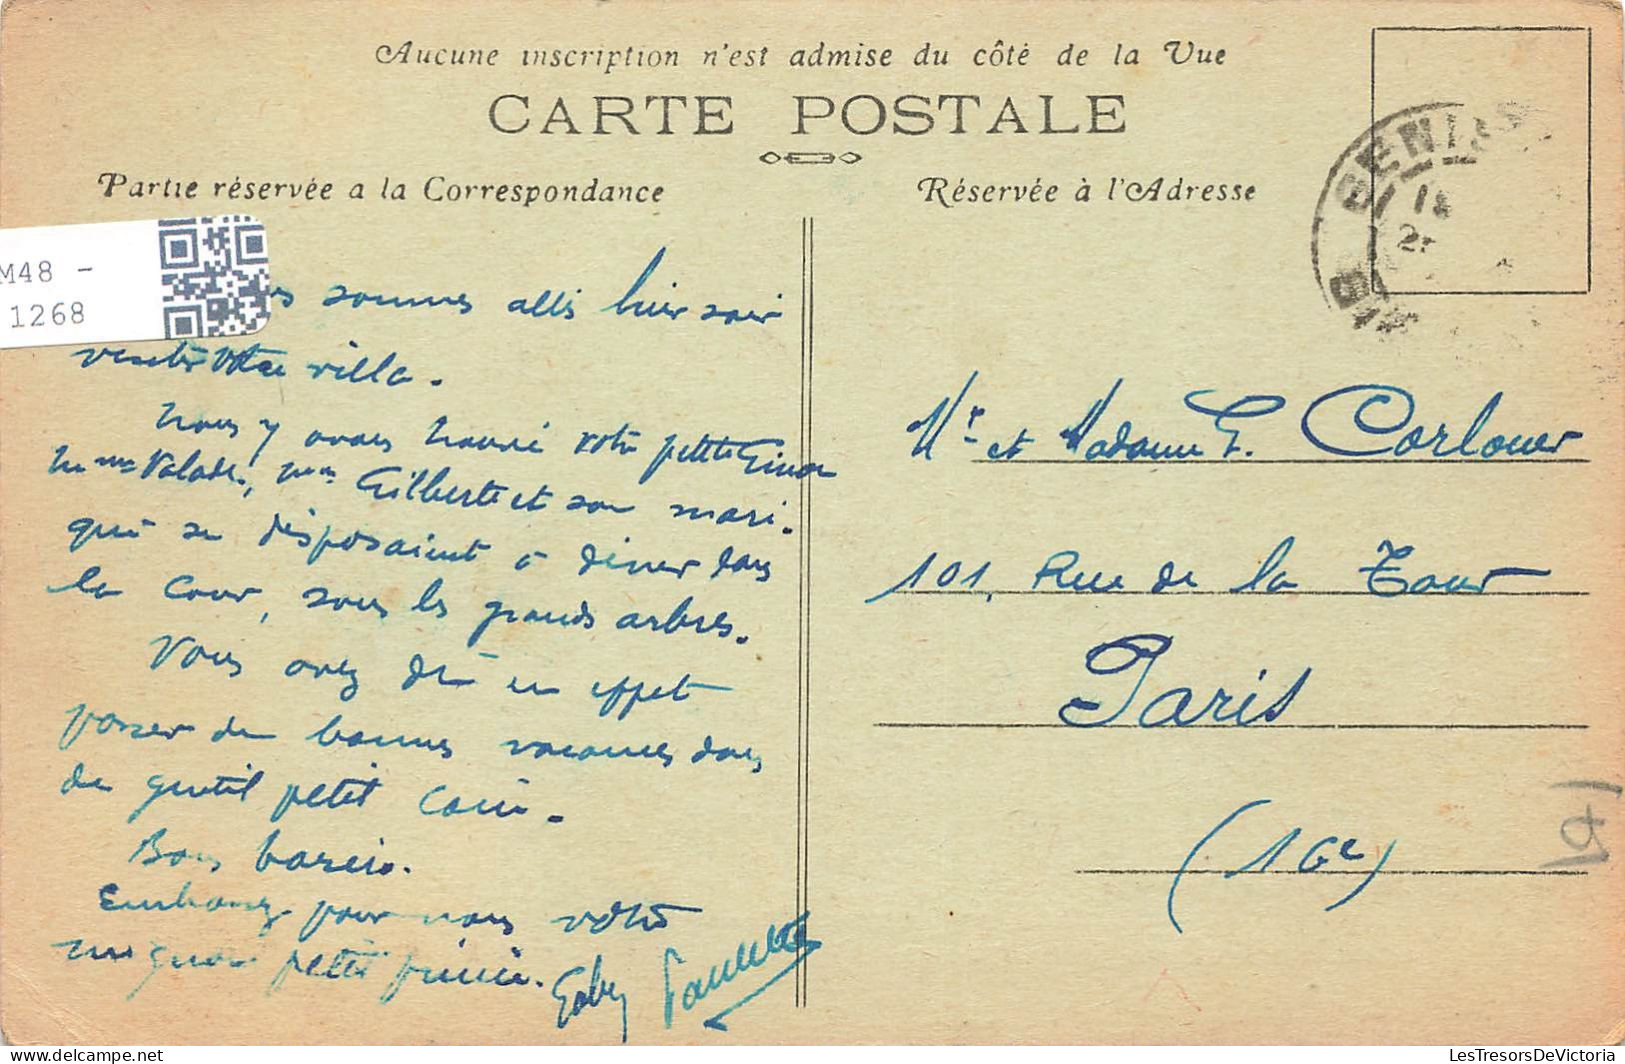 Aucune inscription n'est admise du côté de la Vue
CARTE POSTALE
Partie réservée a la Correspondance
Réservée à l'Adresse
M48 -
1268
sommes allés hier soir
visiter votre villa.
Nous y avons trouvé votre petite
Mme Valade, Mme Gilberte et son mari.
qui se disposaient à dîner dans
la cour, sous les grands arbres.
Vous avez dû en effet
passer de bonnes vacances dans
ce gentil petit coin.
Bons baisers.
Embrassez pour nous votre
mignon petit
Gaby
Mr et Madame E. Corlouer
101, Rue de la Tour
Paris
(16e)
LesTresorsDeVictoria